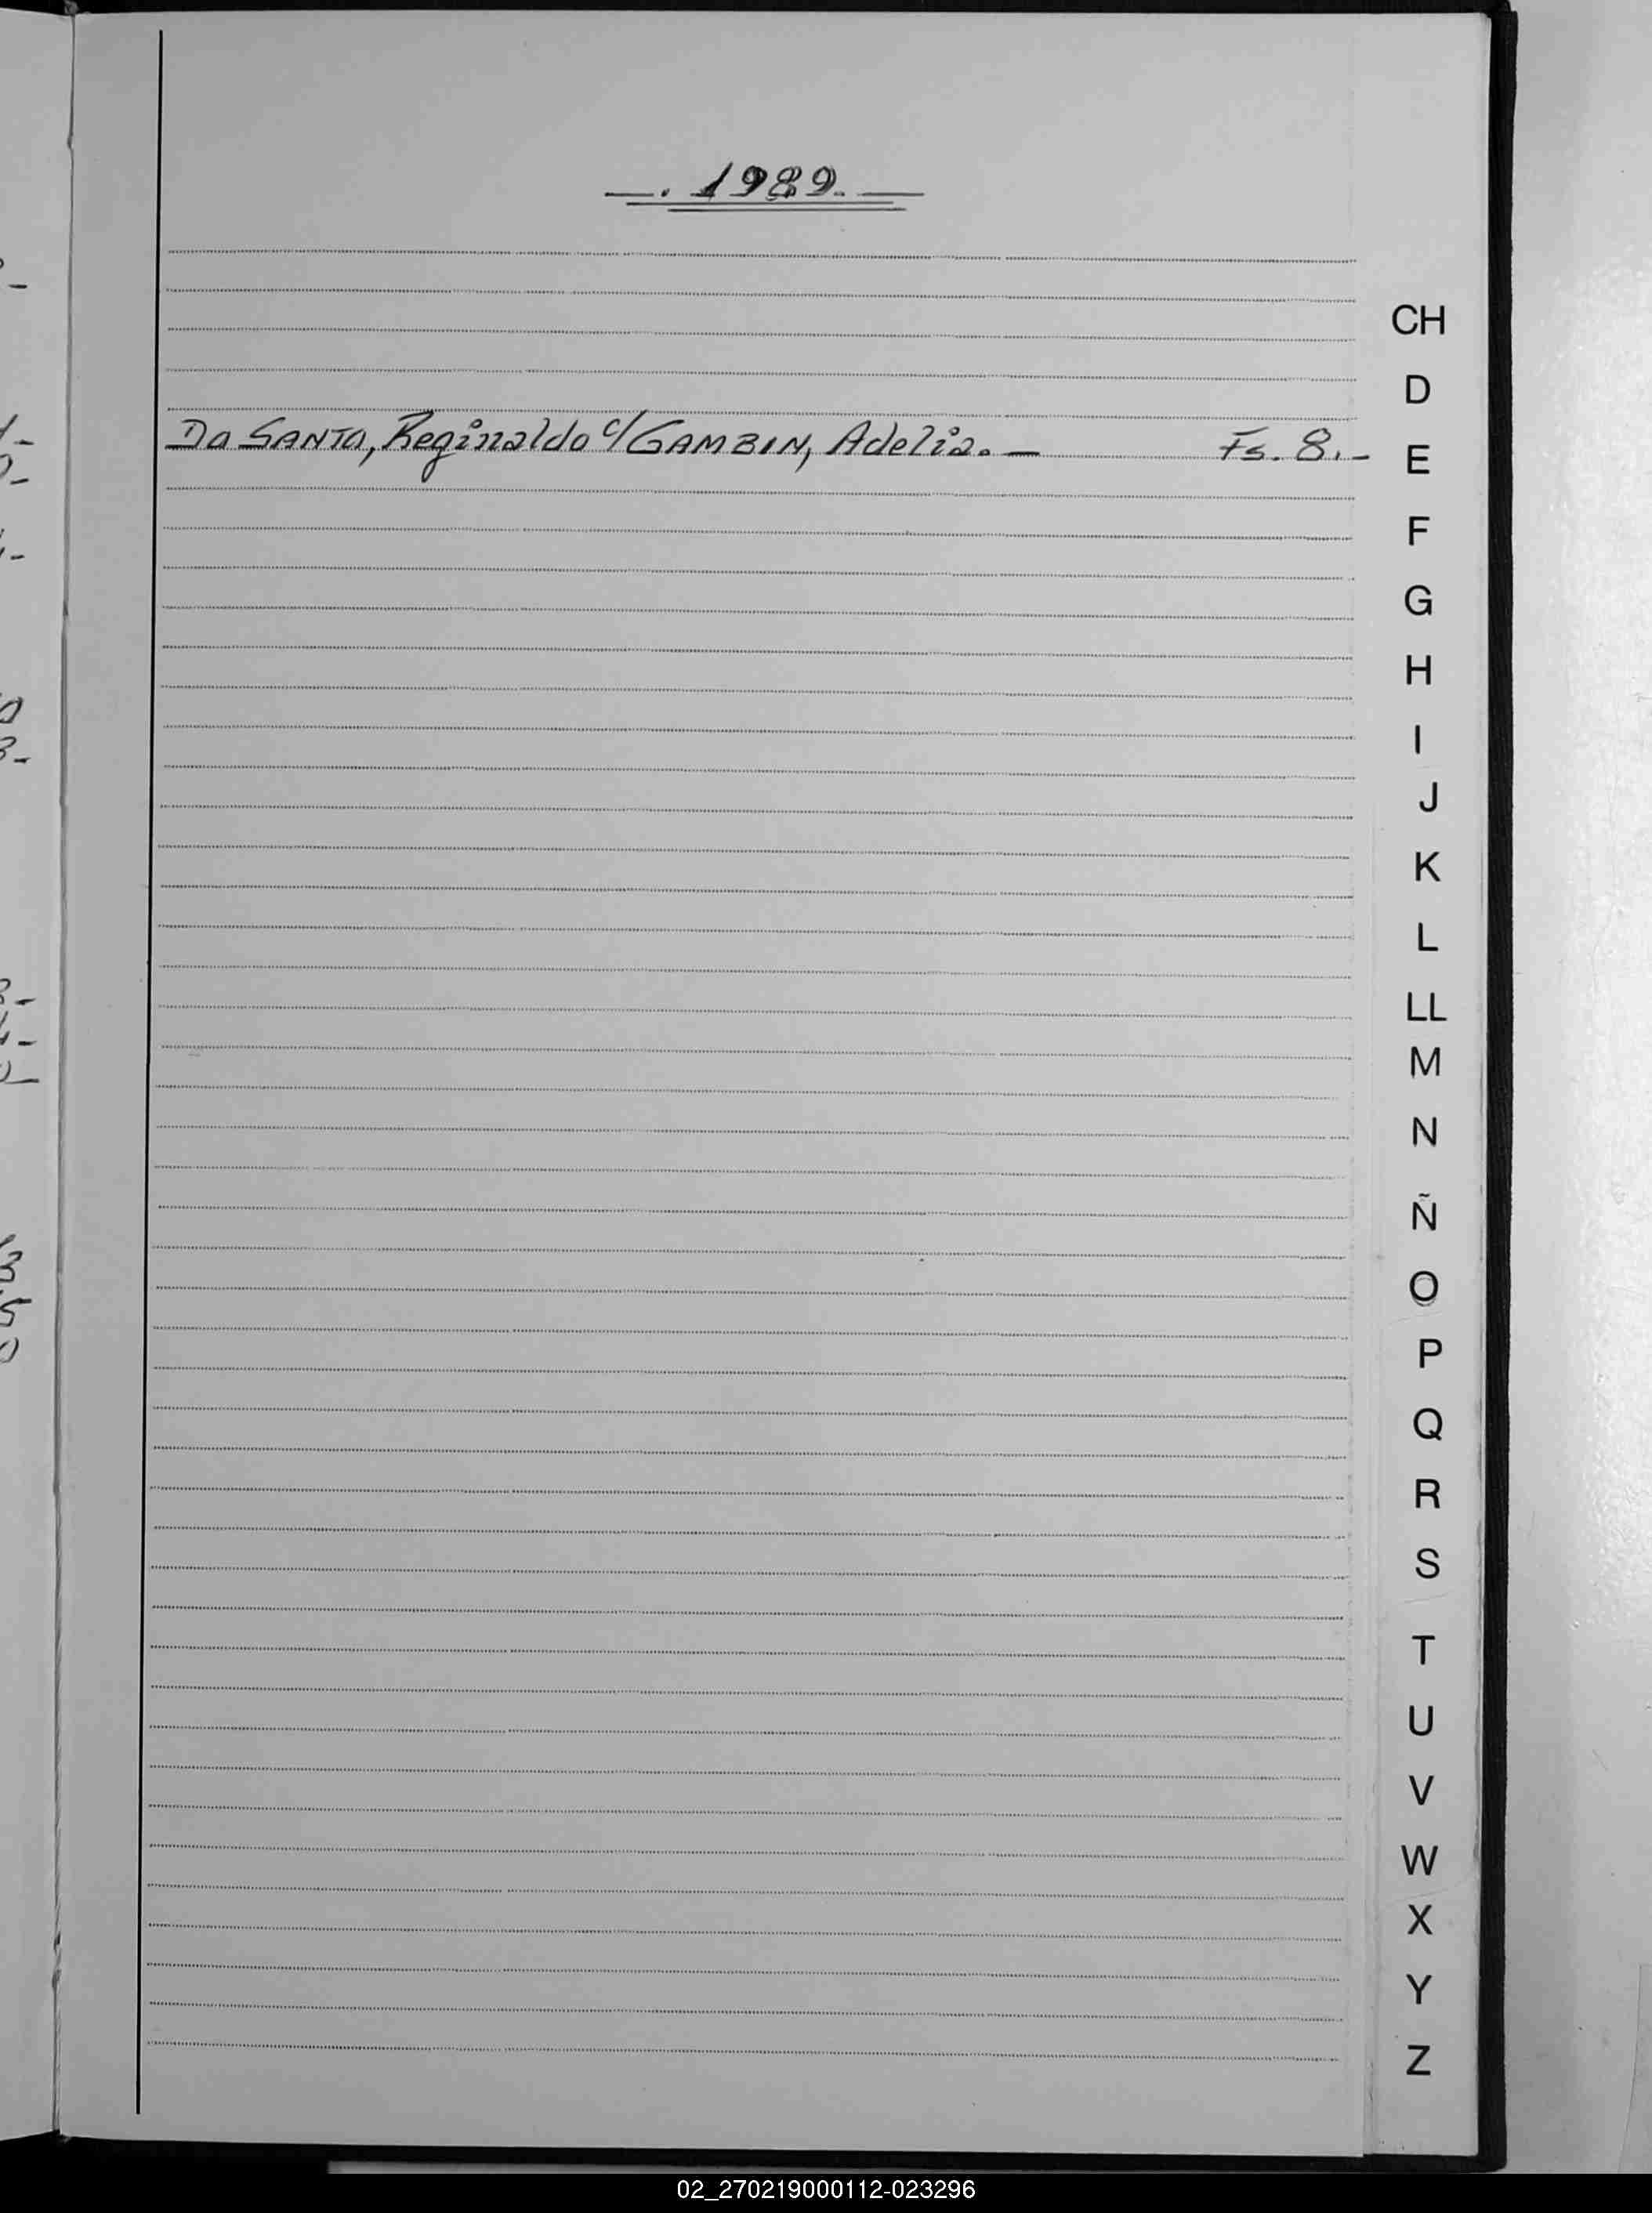 —. 1989. —
Da SANTA, Reginaldo c/GAMBIN, Adelia. — Fs. 8.-
CH
D
E
F
G
H
I
J
K
L
LL
M
N
Ñ
O
P
Q
R
S
T
U
V
W
X
Y
Z
02_270219000112-023296